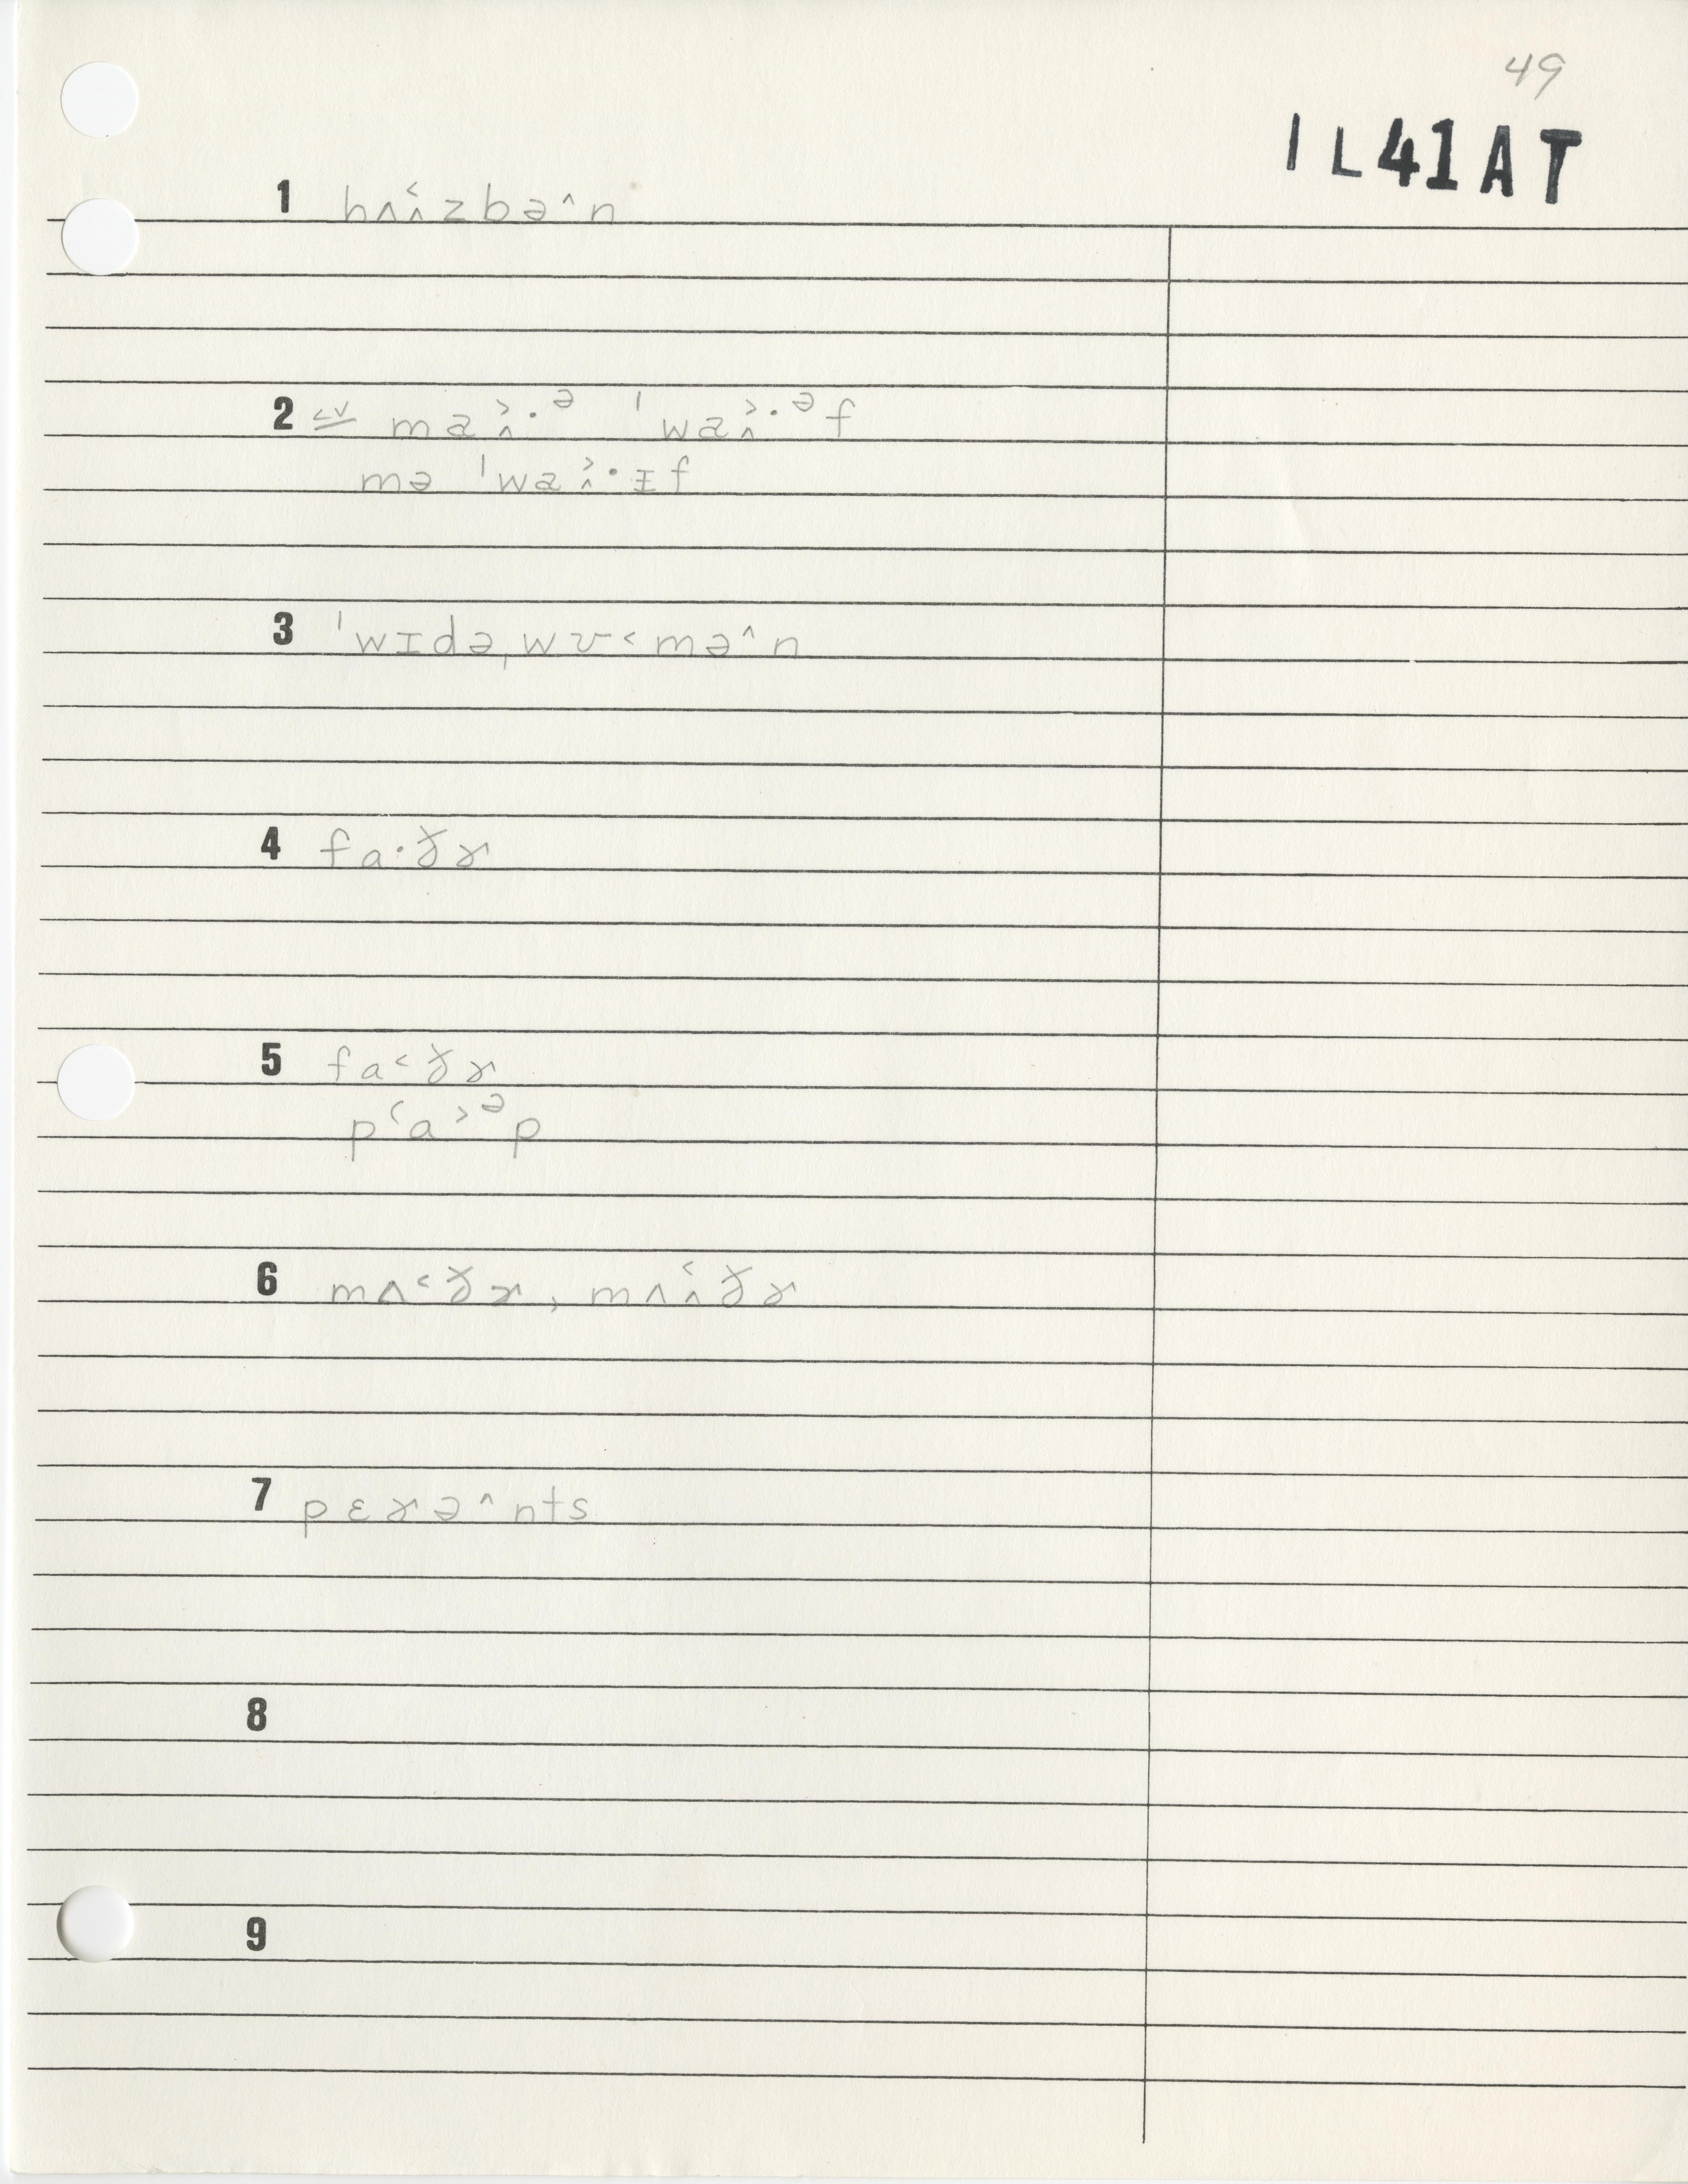 49
IL41AT
1 hʌ˂˄zbə˄n
2 cv ma˃˄·ᵊ ˈwa˃˄·ᵊf
mə ˈwa˃˄·ɪf
3 ˈwɪdəˌwʊ˂mə˄n
4 fa·ðɚ
5 fa˂ðɚ
pʻa˃ᵊp
6 mʌ˂ðɚ, mʌ˂˄ðɚ
7 pɛɚə˄nts
8
9